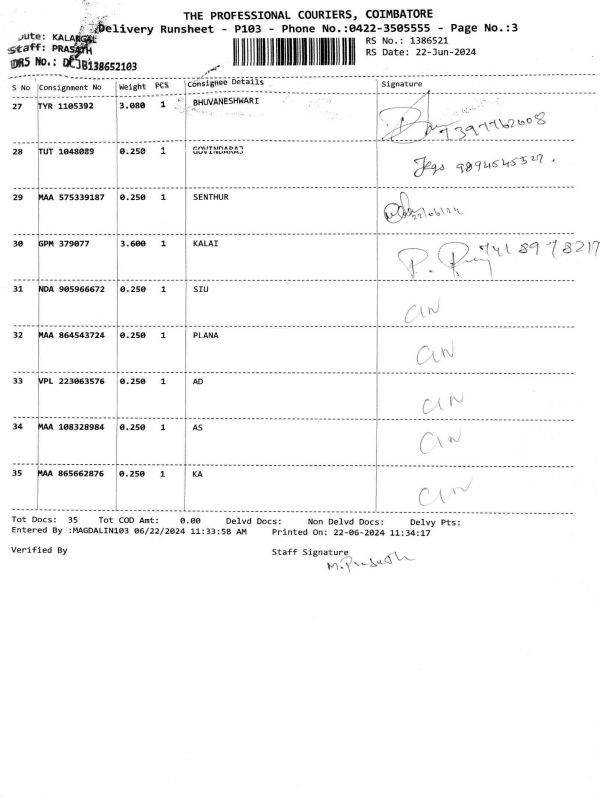 THE PROFESSIONAL COURIERS, COIMBATORE
Delivery Runsheet - P103 - Phone No.:0422-3505555 - Page No.:3
oute: KALANGAL
Staff: PRASATH
DRS No.: DCJB138652103
RS No.: 1386521
RS Date: 22-Jun-2024
S No Consignment No Weight PCS Consignee Details Signature
27 TYR 1105392 3.080 1 BHUVANESHWARI 7397762608
28 TUT 1048089 0.250 1 GOVINDARAJ Jegs 9894545527.
29 MAA 575339187 0.250 1 SENTHUR 22/06/24
30 GPM 379077 3.600 1 KALAI P. 7418978217
31 NDA 905966672 0.250 1 SIU
32 MAA 864543724 0.250 1 PLANA
33 VPL 223063576 0.250 1 AD
34 MAA 108328984 0.250 1 AS
35 MAA 865662876 0.250 1 KA
Tot Docs: 35 Tot COD Amt: 0.00 Delvd Docs: Non Delvd Docs: Delvy Pts:
Entered By :MAGDALIN103 06/22/2024 11:33:58 AM Printed On: 22-06-2024 11:34:17
Verified By Staff Signature
M.Prasath